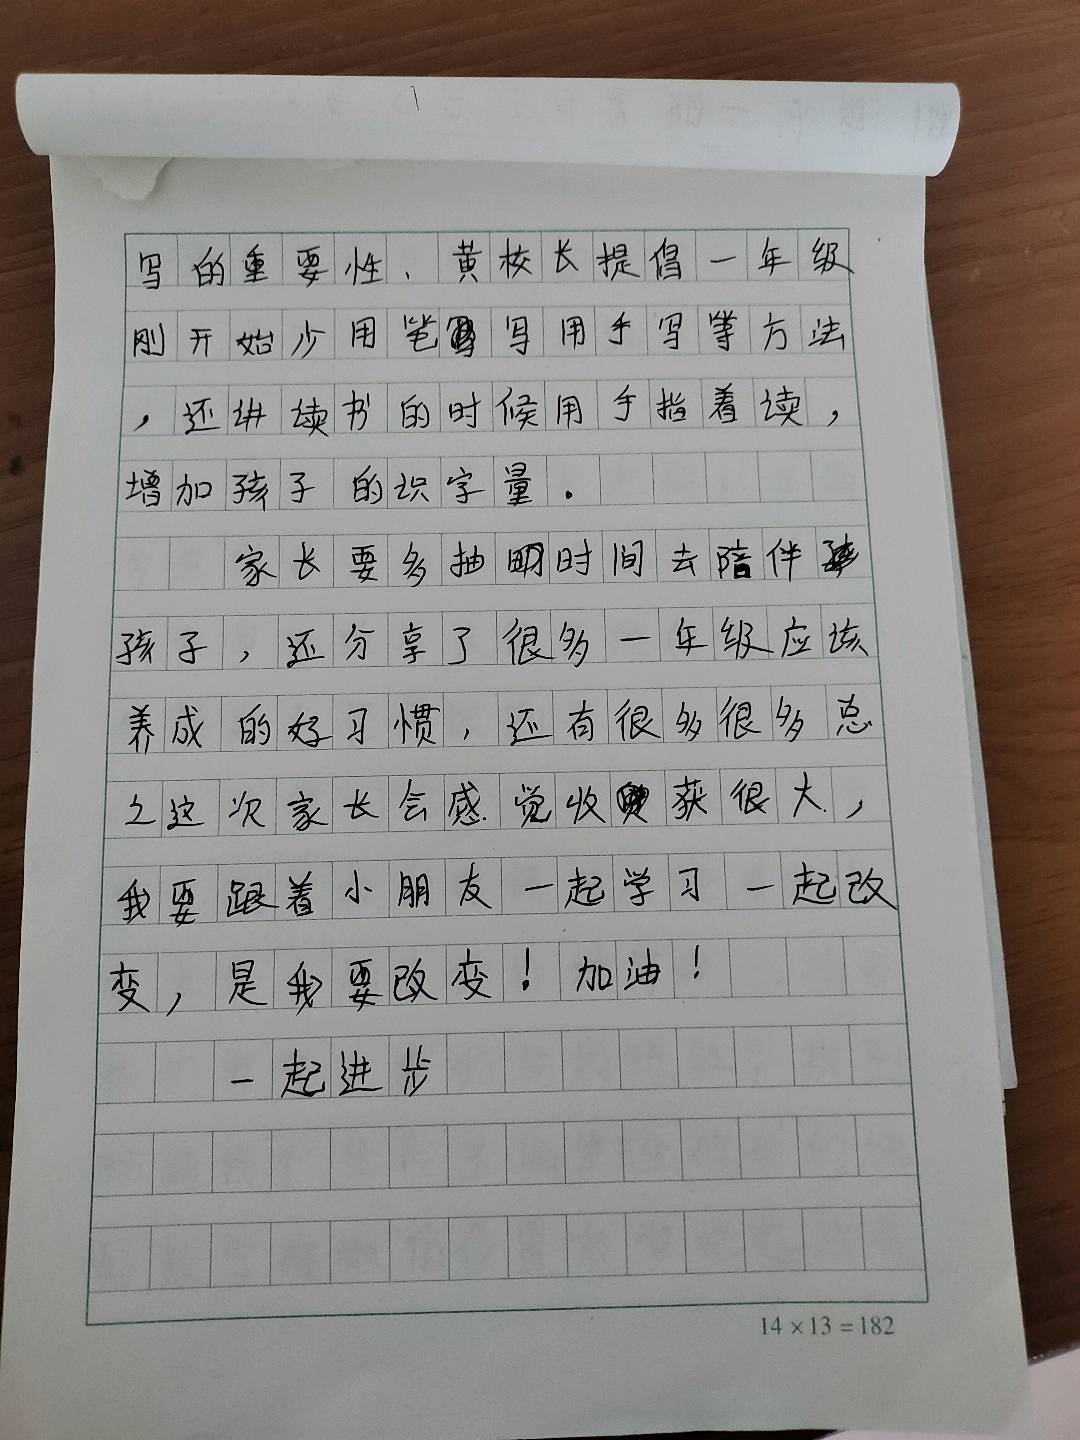 写的重要性、黄校长提倡一年级
刚开始少用笔写用手写等方法
，还讲读书的时候用手指着读，
增加孩子的识字量.
家长要多抽时间去陪伴
孩子，还分享了很多一年级应该
养成的好习惯，还有很多很多总
之这次家长会感觉收获很大，
我要跟着小朋友一起学习一起改
变，是我要改变！加油！
一起进步
14×13=182